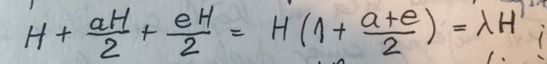 H + aH/2 + eH/2 = H(1 + (a+e)/2) = λH